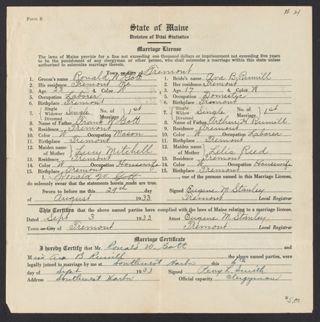 Form B
State of Maine
Division of Vital Statistics
Marriage License
The laws of Maine provide for a fine not exceeding one thousand dollars or imprisonment not exceeding five years
to be the punishment of any clergyman or other person who shall solemnize a marriage within this state unless
authorized to solemnize marriages therein.
Tremont
1. Groom's name Ronald W. Gott 1. Bride's name Ava B. Rumill
2. His residence Tremont Me 2. Her residence Tremont
3. Age 4. Color W 3. Age 17 4. Color W
5. Occupation Laborer 5. Occupation Domestic
6. Birthplace Tremont 6. Birthplace Tremont
7. Single Widowed Divorced Single No. of Marriage 1st 7. Single Widowed Divorced Single No. of Marriage 1st
8. Name of Father Gott 8. Name of Father Arthur H. Rumill
9. Residence Tremont 9. Residence Tremont
10. Color W 11. Occupation Mason 10. Color W 11. Occupation Laborer
12. Birthplace Tremont 12. Birthplace Tremont
13. Maiden name of Mother Mitchell 13. Maiden name of Mother Reed
14. Residence Tremont 14. Residence Tremont
15. Color W 16. Occupation Housewife 15. Color W 16. Occupation Housewife
17. Birthplace Tremont 17. Birthplace Tremont
I, Ronald W. Gott one of the persons named in this Marriage License,
do solemnly swear that the statements herein made are true.
Sworn to before me this 29th day Signed Eugene M. Stanley
of August 1933 Tremont Local Registrar
This Certifies that the above named parties have complied with the laws of Maine relating to marriage license.
Dated Sept 3 1933 Attest Eugene M. Stanley
Town or City of Tremont Tremont Local Registrar
Marriage Certificate
I hereby Certify that Mr. Ronald W. Gott and
Miss Ava B. Rumill the above named parties, were
legally joined in marriage by me at Southwest Harbor this day
of Sept. 1933 Signed Smith
Address Southwest Harbor Official capacity Clergyman